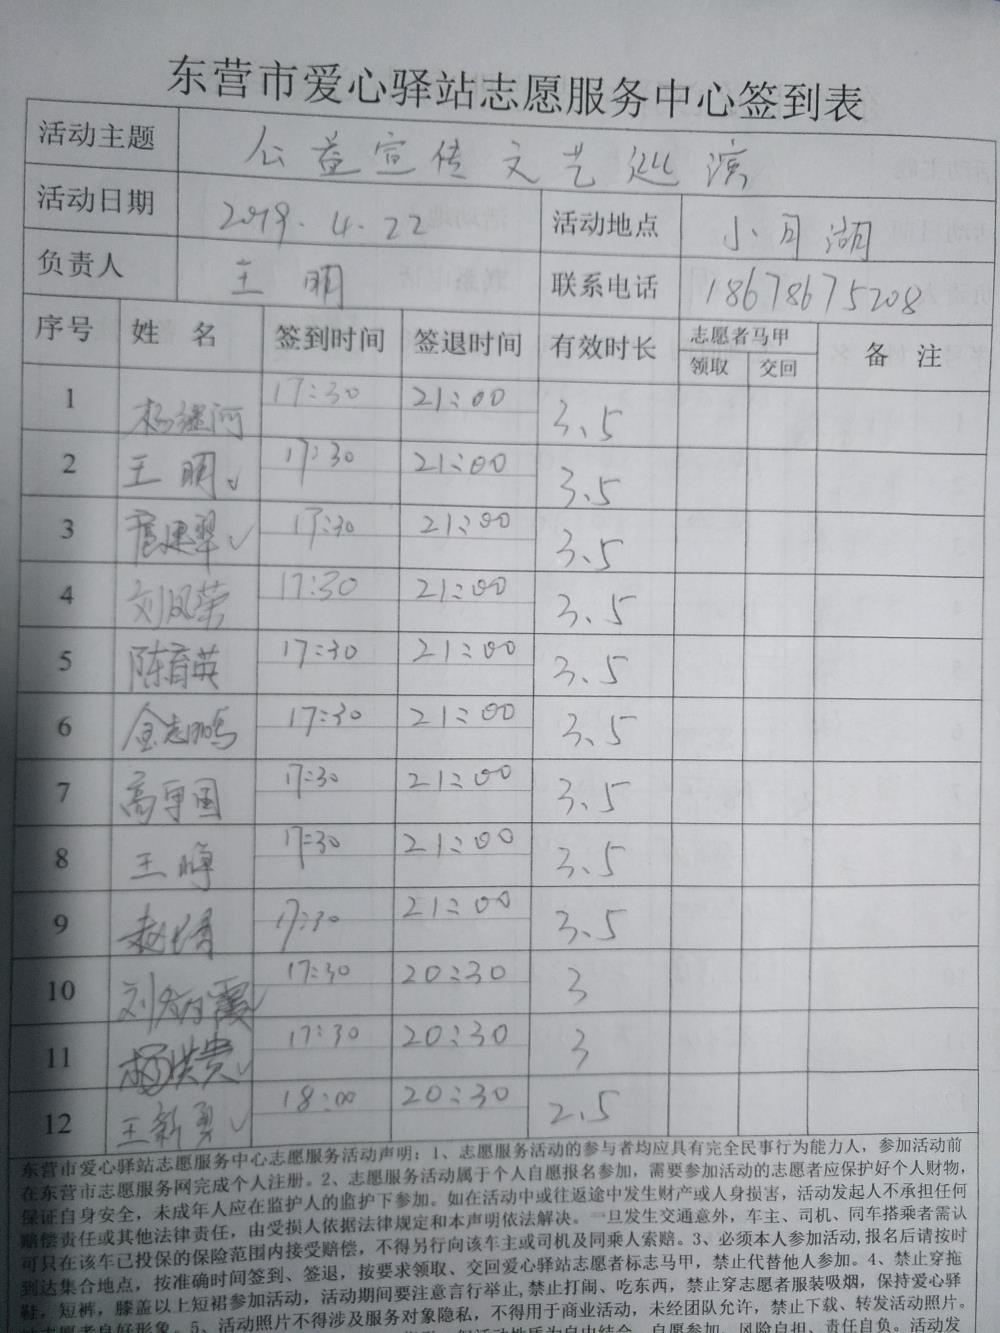 东营市爱心驿站志愿服务中心签到表
活动主题 公益宣传文艺巡演
活动日期 2019.4.22 活动地点 小月湖
负责人 王明 联系电话 18678675208
序号 姓名 签到时间 签退时间 有效时长 志愿者马甲 备注
领取 交回
1 杨继河 17:30 21:00 3.5
2 王明✓ 17:30 21:00 3.5
3 17:30 21:00 3.5
4 刘凤荣 17:30 21:00 3.5
5 陈育英 17:30 21:00 3.5
6 金志鸣 17:30 21:00 3.5
7 高军国 17:30 21:00 3.5
8 王峰 17:30 21:00 3.5
9 17:30 21:00 3.5
10 17:30 20:30 3
11 杨洪贵✓ 17:30 20:30 3
12 王新勇✓ 18:00 20:30 2.5
东营市爱心驿站志愿服务中心志愿服务活动声明：1、志愿服务活动的参与者均应具有完全民事行为能力人，参加活动前
在东营市志愿服务网完成个人注册。2、志愿服务活动属于个人自愿报名参加，需要参加活动的志愿者应保护好个人财物，
保证自身安全，未成年人应在监护人的监护下参加。如在活动中或往返途中发生财产或人身损害，活动发起人不承担任何
赔偿责任或其他法律责任，由受损人依据法律规定和本声明依法解决。一旦发生交通意外，车主、司机、同车搭乘者需认
可只在该车已投保的保险范围内接受赔偿，不得另行向该车主或司机及同乘人索赔。3、必须本人参加活动,报名后请按时
到达集合地点，按准确时间签到、签退，按要求领取、交回爱心驿站志愿者标志马甲，禁止代替他人参加。4、禁止穿拖
鞋，短裤，膝盖以上短裙参加活动，活动期间要注意言行举止,禁止打闹、吃东西，禁止穿志愿者服装吸烟，保持爱心驿
站志愿者良好形象。5、活动照片不得涉及服务对象隐私，不得用于商业活动，未经团队允许，禁止下载、转发活动照片。
自愿参加、风险自担、责任自负。活动发